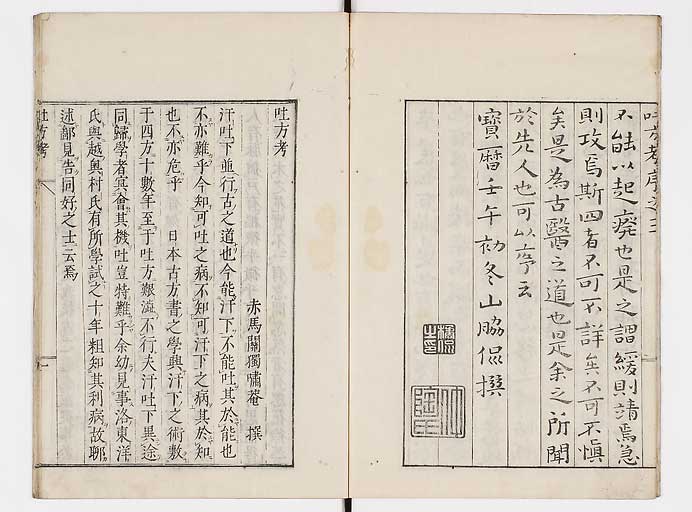 吐方考序之三
不能以起廃也是之謂緩則請焉急
則攻焉斯四者不可不詳矣不可不慎
矣是為古醫之道也是余之所聞
於先人也可以序云
寶曆壬午初冬山脇侃撰
吐方考
赤馬關獨嘯菴 撰
汗吐下並行古之道也今能汗下不能吐其於能也
不亦難乎今知可吐之病不知可汗下之病其於知
也不亦危乎 日本古方書之學興汗下之術敷
于四方十數年至于吐方艱澁不行夫汗吐下異途
同歸學者寞會其機吐豈特難乎余幼見事洛東洋
氏與越奥村氏有所學試之十年粗知其利病故聊
述鄙見告同好之士云焉
吐方考
一